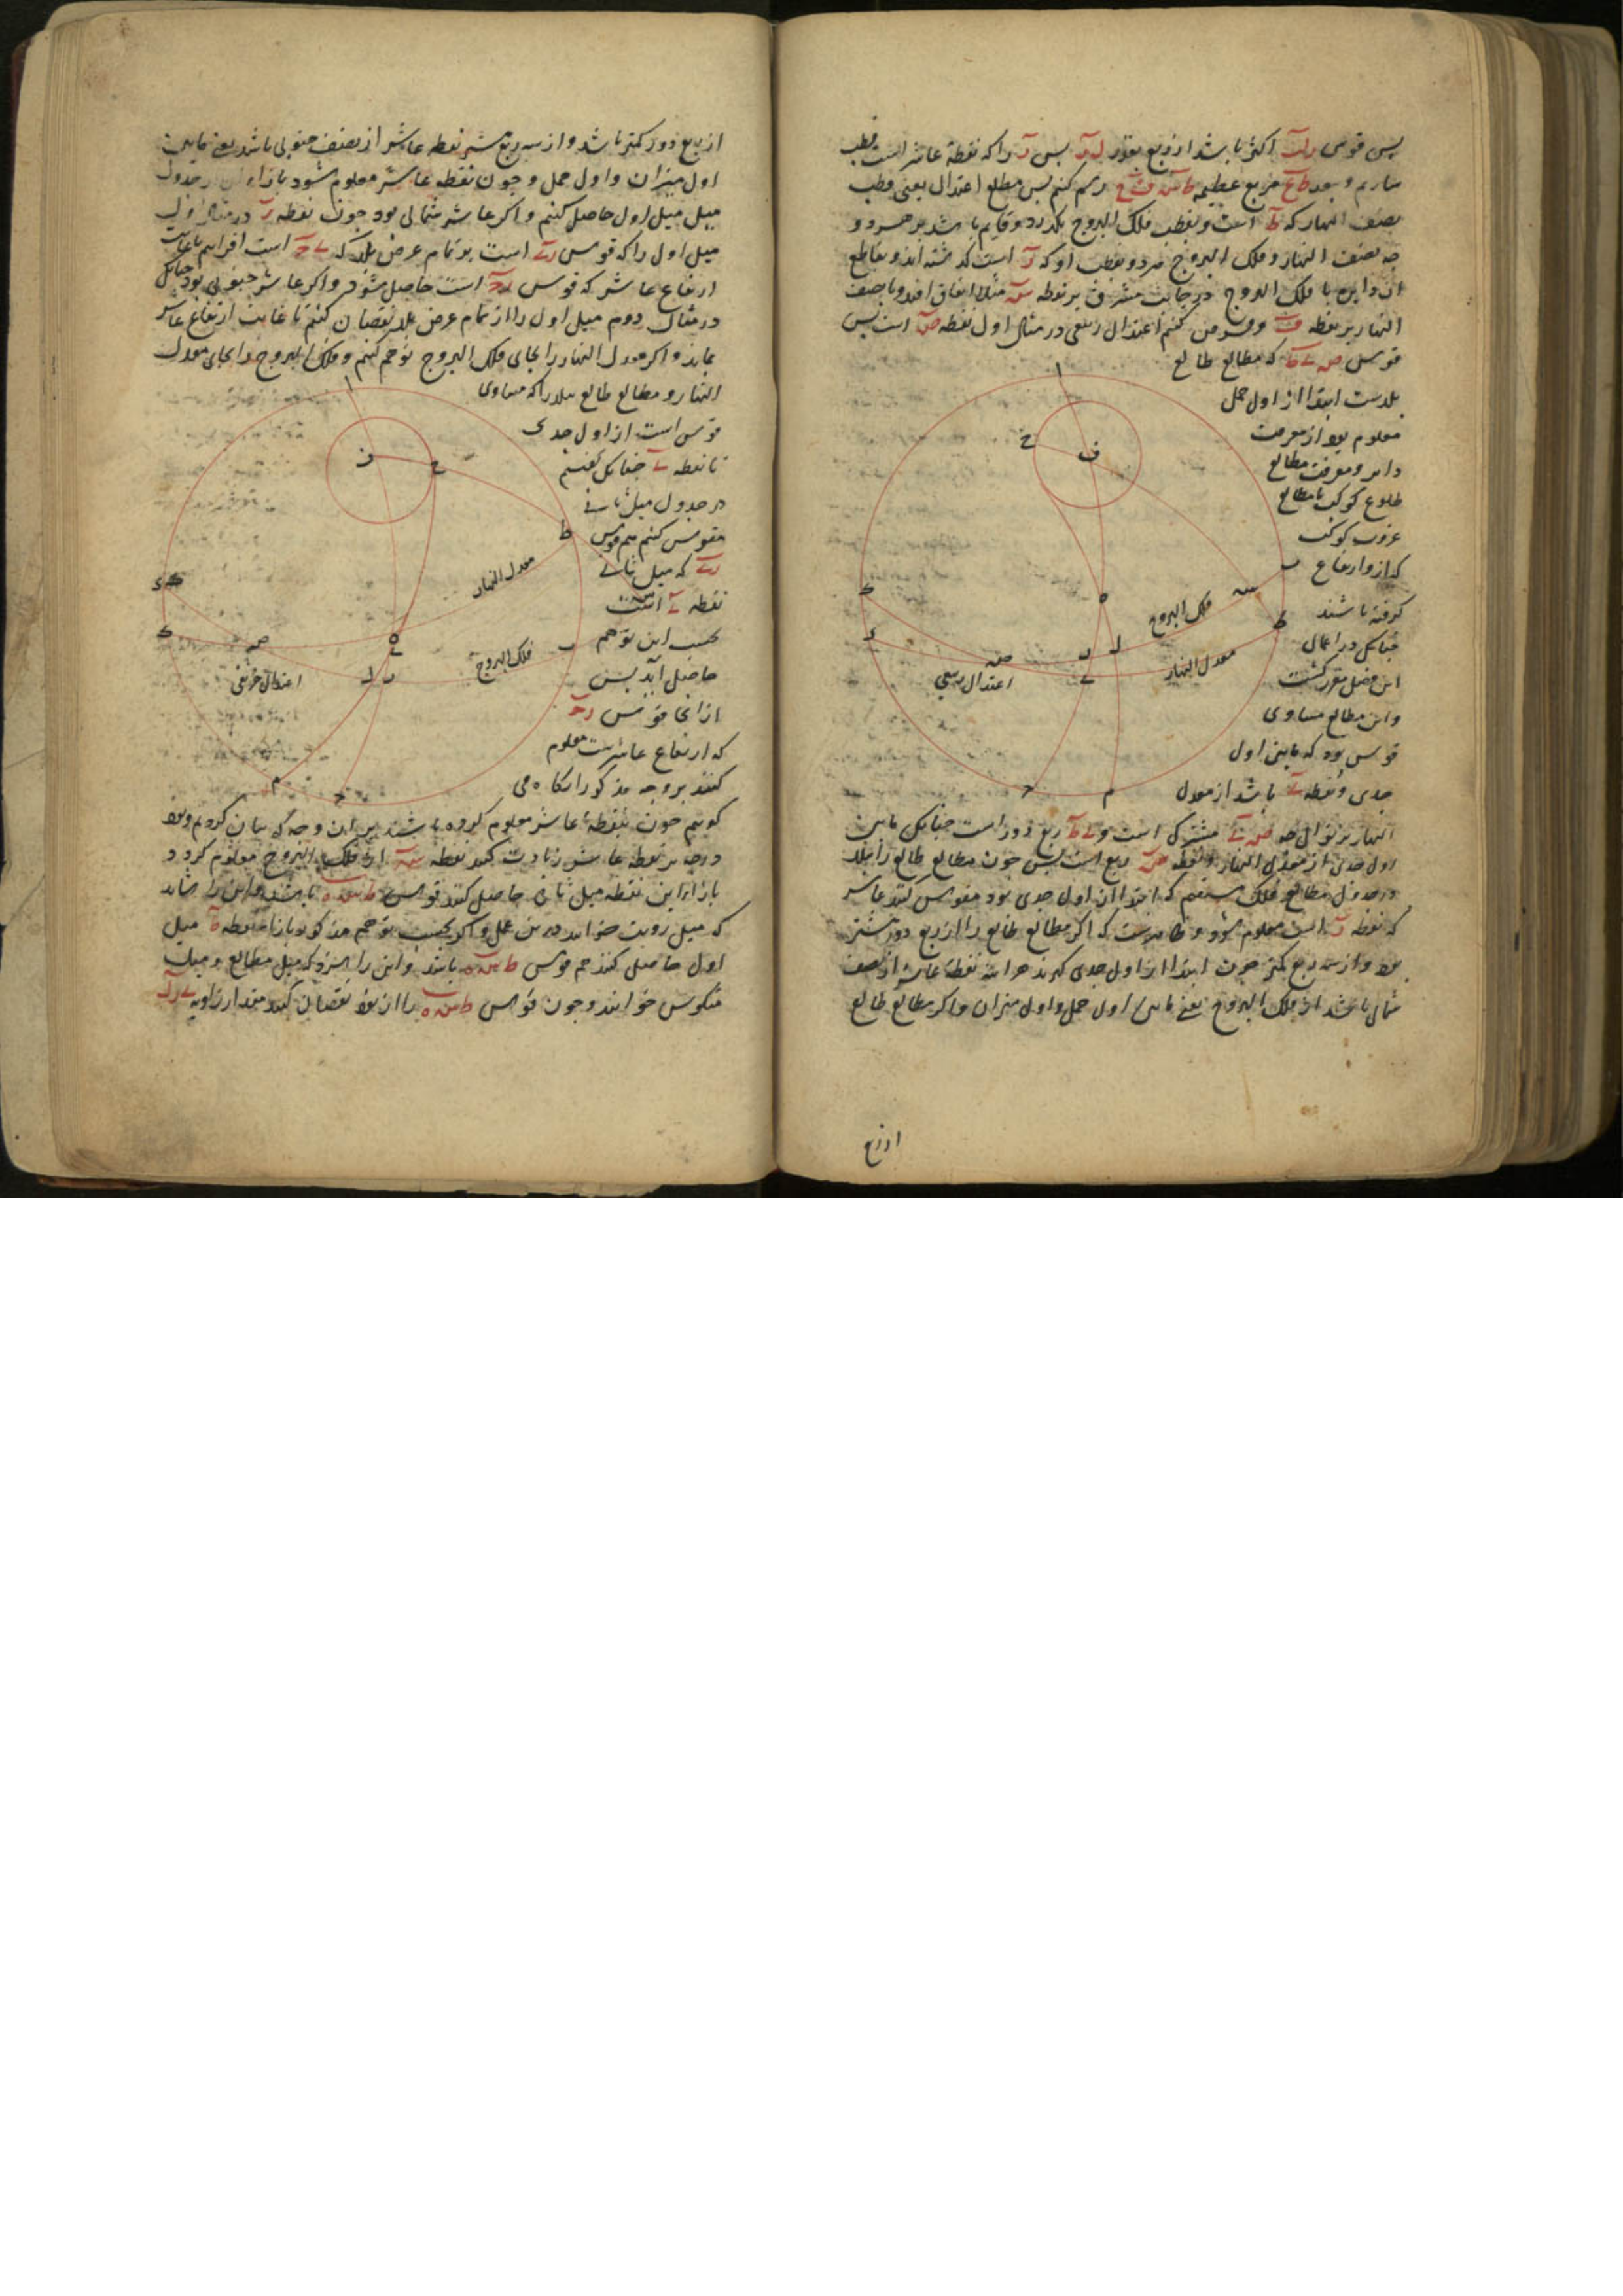 پس قوس رلب اکثر باشد از ربع بقدر ل ر پس ر را که نقطهٔ عاشر است قطب
سازیم و ببعد ربع عظیمه رسم کنیم پس مطلع اعتدال یعنی قطب
نصف النهار که ط است و بقطب فلک البروج بگذرد و قایم باشد بر هر دو
چه نصف النهار و فلک البروج بر دو قطب او که ر است گذشته‌اند و تقاطع
آن دایره با فلک البروج در جانب مشرق بر نقطه س مثلا اتفاق افتد و با نصف
النهار بر نقطه ف و فرض کنیم اعتدال ربیعی در مثال اول نقطه ص است پس
قوس ص ے ط که مطالع طالع
بلدست ابتدا از اول حمل
معلوم بود از معرفت
دایر و معرفت مطالع
طلوع کوکب یا مطالع
غروب کوکب
که ازو ارتفاع
گرفته باشند
چنانکه در اعمال
این فصل مقرر گشت
و این مطالع مساوی
قوسی بود که مابین اول
جدی و نقطه ے باشد از معدل
النهار بر توالی چه ص ے مشترک است و ے ط ربع دور است چنانکه مابین
اول جدی از معدل النهار و نقطه ص ربع است پس چون مطالع طالع را ببلد
در جدول مطالع فلک مستقیم که ابتدا از اول جدی بود مقوس کنند عاشر
که نقطه ر است معلوم شود و ظاهرست که اگر مطالع طالع را از ربع دور بیشتر
بود و از سه ربع کمتر چون ابتدا از اول جدی گیرند هر آینه نقطهٔ عاشر از نصف
شمالی باشد از فلک البروج یعنی مابین اول حمل و اول میزان و اگر مطالع طالع
از ربع
ا
ح
ف
ب
س
ط
ه
فلک البروج
معدل النهار
ل
ر
ے
ص
اعتدال ربیعی
ک
ی
ح
م
از ربع دور کمتر باشد و از سه ربع بیشتر نقطه عاشر از نصف جنوبی باشد یعنی مابین
اول میزان و اول حمل و چون نقطه عاشر معلوم شود بازاء آن از جدول
میل میل اول حاصل کنیم و اگر عاشر شمالی بود چون نقطه ر در مثال اول
میل اول را که قوس رے است بر تمام عرض بلد که ے ح است افزاییم تا غایت
ارتفاع عاشر که قوس رح است حاصل شود و اگر عاشر جنوبی بود چنانکه
در مثال دوم میل اول را از تمام عرض بلد نقصان کنیم تا غایت ارتفاع عاشر
بماند و اگر معدل النهار را بجای فلک البروج توهم کنیم و فلک البروج را بجای معدل
النهار و مطالع طالع ببلد را که مساوی
قوس است از اول جدی
تا نقطه ے چنانکه گفتیم
در جدول میل ثانی
مقوس کنیم هم قوس
رے که میل ثانی
نقطه ے است
بحسب این توهم
حاصل آید پس
از انجا قوس رح
که ارتفاع عاشر است معلوم
کنند بر وجه مذکور انکاه می
کوییم چون نقطهٔ عاشر معلوم کرده باشند بر آن وجه که بیان کردیم و نود
درجه بر نقطه عاشر زیادت کنند نقطه س از فلک البروج معلوم گردد
بازاء این نقطه میل ثانی حاصل کنند قوس ط س ه باشد و این را شاید
که میل رویت خوانند درین عمل و اگر بحسب توهم مذکور بازاء نقطه ط میل
اول حاصل کنند هم قوس ط س ه باشد و این را سزد که میل مطالع و میل
منکوس خوانند و چون قوس ط س ه را از نود نقصان کنند مقدار زاویه ے ر ل
ا
ف
ع
ط
معدل النهار
س
ب
فلک البروج
ه
ے
ل
ر
ص
اعتدال خریفی
ی
ک
م
ح